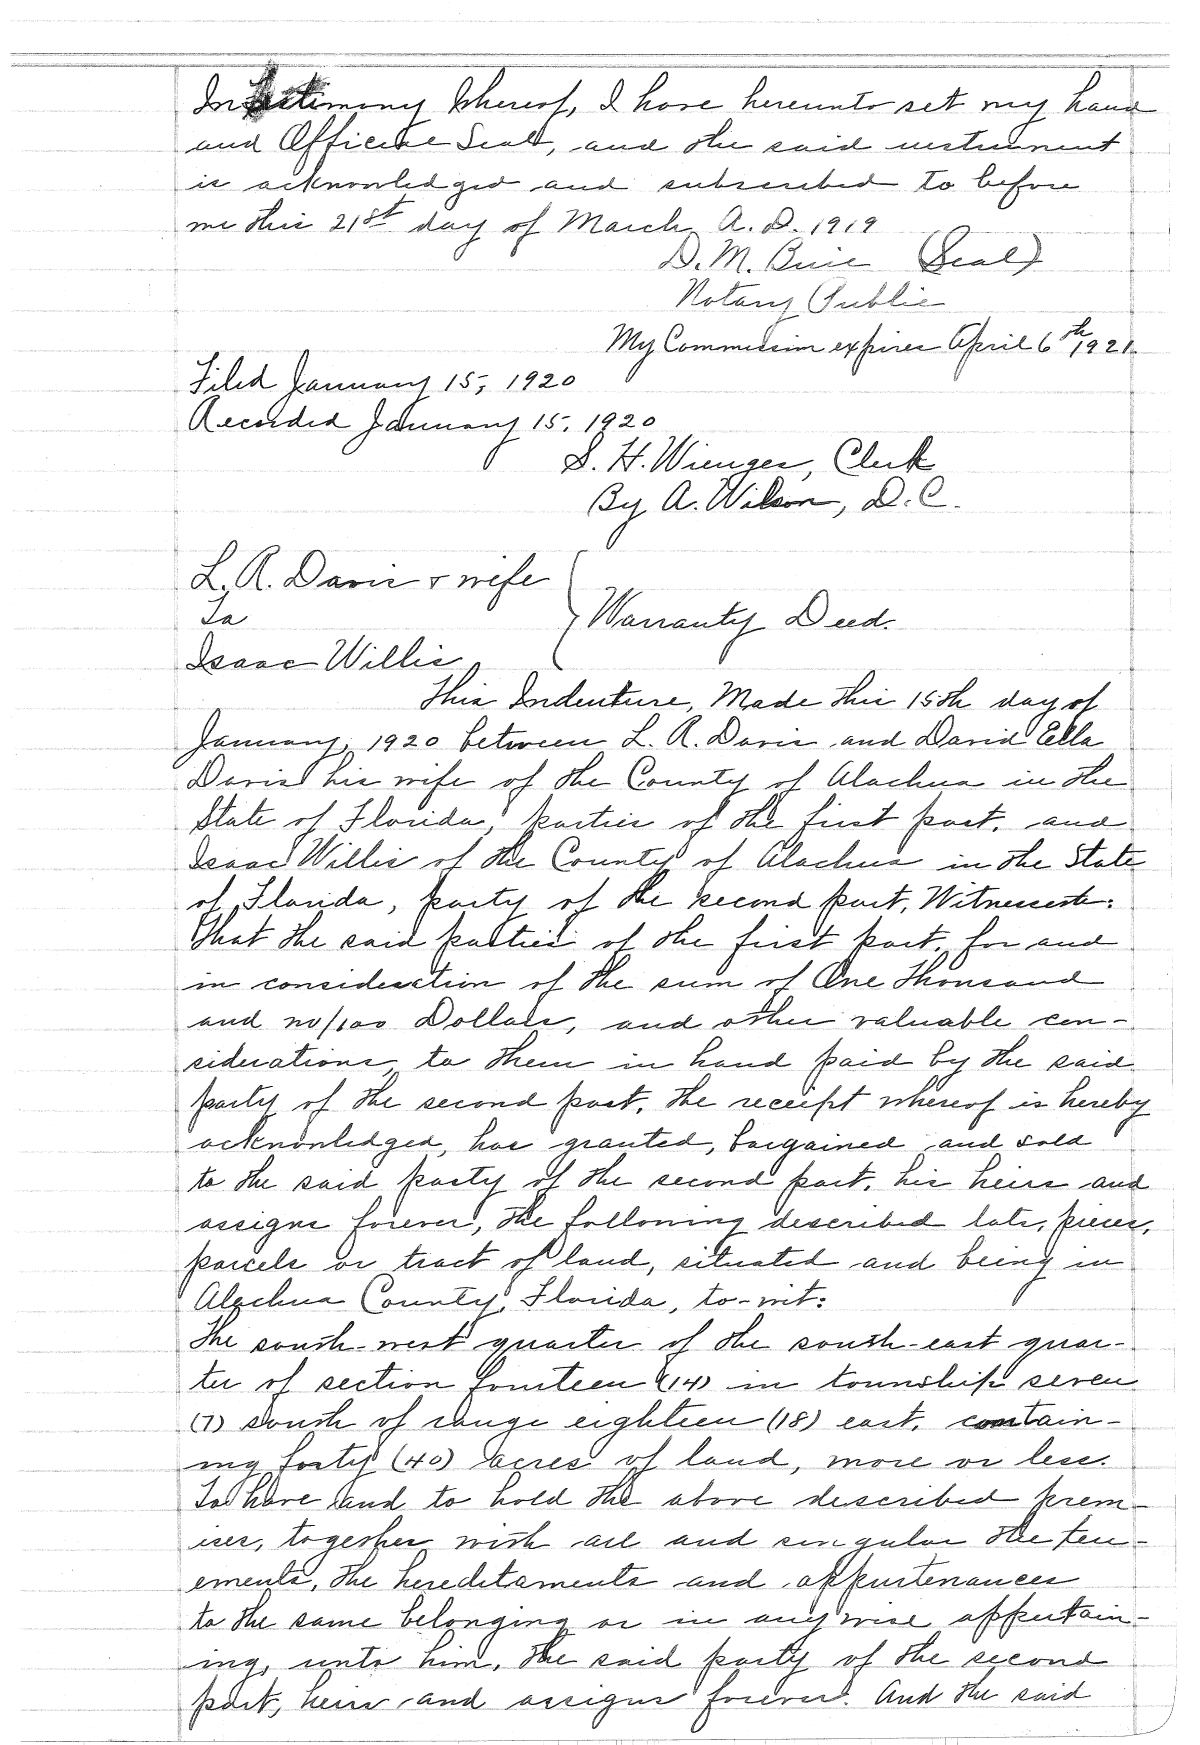 In testimony Whereof, I have hereunto set my hand
and Official Seal, and the said instrument
is acknowledged and subscribed to before
me this 21st day of March, A.D. 1919
D. M. (Seal)
Notary Public
My Commission expires April 6th 1921.
Filed January 15, 1920
Recorded January 15, 1920
S. H. Wienges, Clerk
By A. Wilson, D.C.
L. R. Davis & wife
To
Warranty Deed.
Isaac Willis
This Indenture, Made this 15th day of
January, 1920 between L. R. Davis and David Ella
Davis his wife of the County of Alachua in the
State of Florida, parties of the first part, and
Isaac Willis of the County of Alachua in the State
of Florida, party of the second part, Witnesseth:
That the said parties of the first part, for and
in consideration of the sum of One Thousand
and no/100 Dollars, and other valuable con-
siderations, to them in hand paid by the said
party of the second part, the receipt whereof is hereby
acknowledged, has granted, bargained and sold
to the said party of the second part, his heirs and
assigns forever, the following described lots, pieces,
parcels or tract of land, situated and being in
Alachua County, Florida, to-wit:
The south-west quarter of the south-east quar-
ter of section fourteen (14) in township seven
(7) south of range eighteen (18) east, contain-
ing forty (40) acres of land, more or less.
To have and to hold the above described prem-
ises, together with all and singular the ten-
ements, the hereditaments and appurtenances
to the same belonging or in anywise appertain-
ing, unto him, the said party of the second
part, heirs and assigns forever. And the said